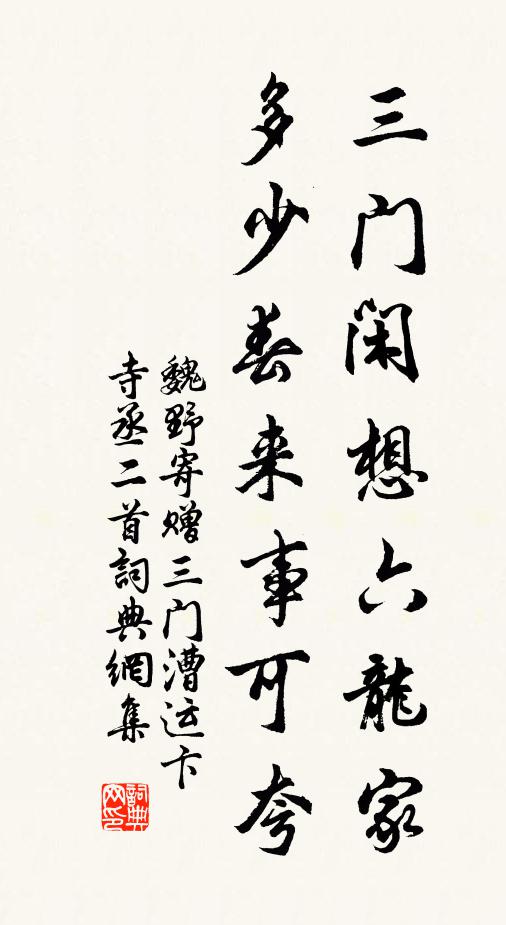 三门闲想六龍家
多少春来事可夸
魏野寄赠三门漕运卞
寺丞二首詞典網集
詞典网印